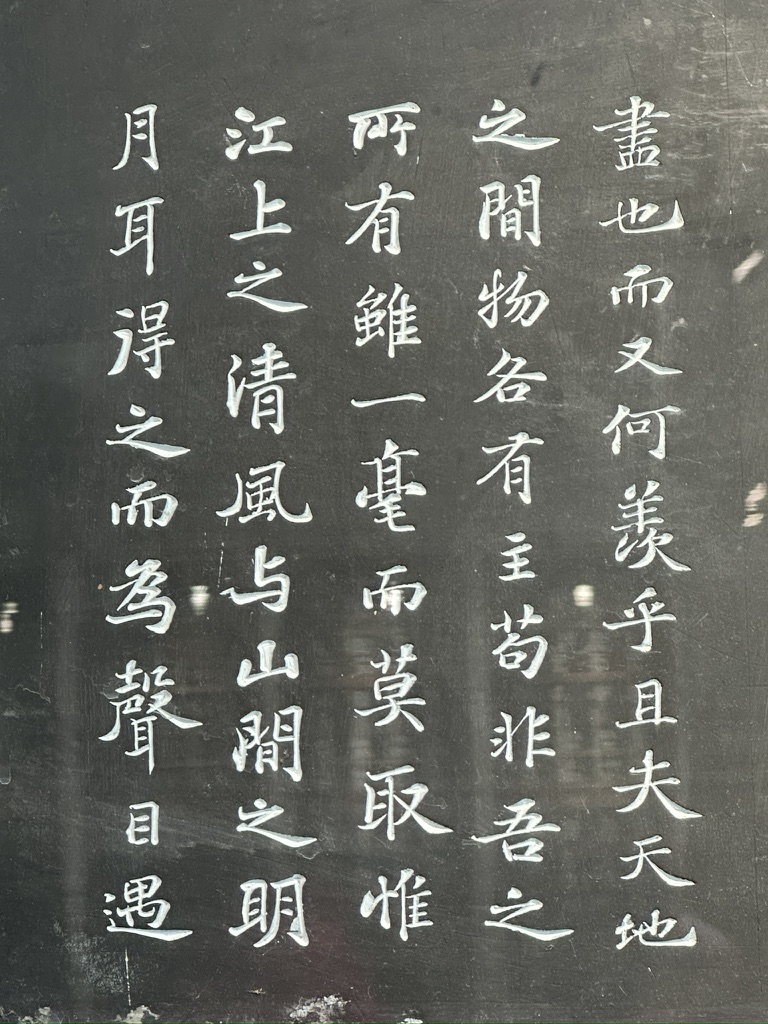 盡也而又何羨乎且夫天地
之間物各有主苟非吾之
所有雖一毫而莫取惟
江上之清風与山間之明
月耳得之而為聲目遇